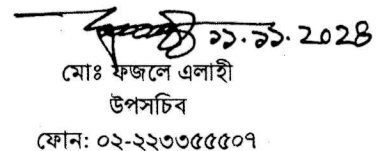 ১১.১১.2028
মোঃ ফজলে এলাহী
উপসচিব
ফোন: ০২-২২৩৩৫৫৫০৭